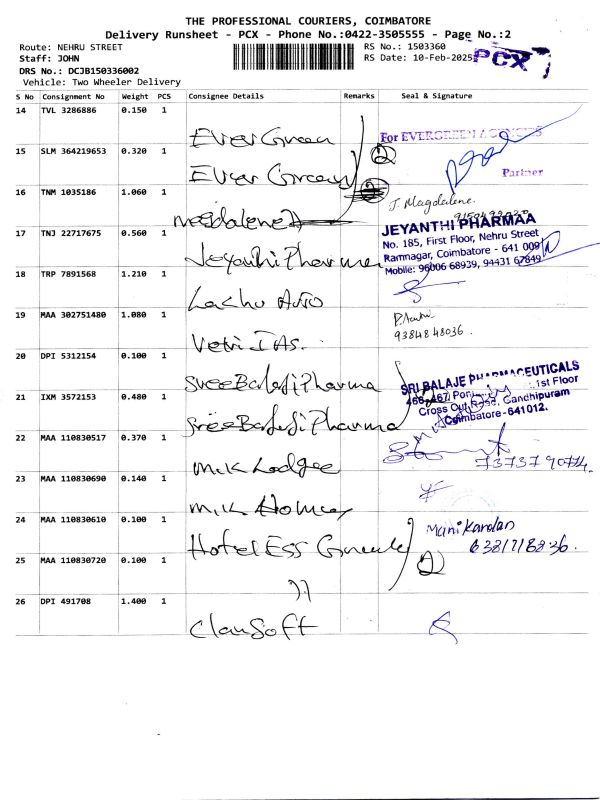 THE PROFESSIONAL COURIERS, COIMBATORE
Delivery Runsheet - PCX - Phone No.:0422-3505555 - Page No.:2
Route: NEHRU STREET
RS No.: 1503360
Staff: JOHN
RS Date: 10-Feb-2025
PCX
DRS No.: DCJB150336002
Vehicle: Two Wheeler Delivery
S No Consignment No Weight PCS Consignee Details Remarks Seal & Signature
14 TVL 3286886 0.150 1
Ever Green
For EVERGREEN AGENCIES
15 SLM 364219653 0.320 1
Ever Green
2
Partner
16 TNM 1035186 1.060 1
Magdalene
J. Magdalene.
17 TNJ 22717675 0.560 1
Jeyanthi Pharma
JEYANTHI PHARMAA
No. 185, First Floor, Nehru Street
Ramnagar, Coimbatore - 641 009
Mobile: 96006 68939, 94431 67849
18 TRP 7891568 1.210 1
Lachu Auto
19 MAA 302751480 1.080 1
Vetri IAS.
9384848036.
20 DPI 5312154 0.100 1
Sree Balaji Pharma
SRI BALAJE PHARMACEUTICALS
466, 467, 1st Floor
Cross Cut Road, Gandhipuram
Coimbatore - 641012.
21 IXM 3572153 0.480 1
Sree Balaji Pharma
22 MAA 110830517 0.370 1
M.K Lodgee
7373790774.
23 MAA 110830690 0.140 1
M.K Homes
24 MAA 110830610 0.100 1
Hotel Ess
Manikandan
25 MAA 110830720 0.100 1
2
26 DPI 491708 1.400 1
ClanSoft